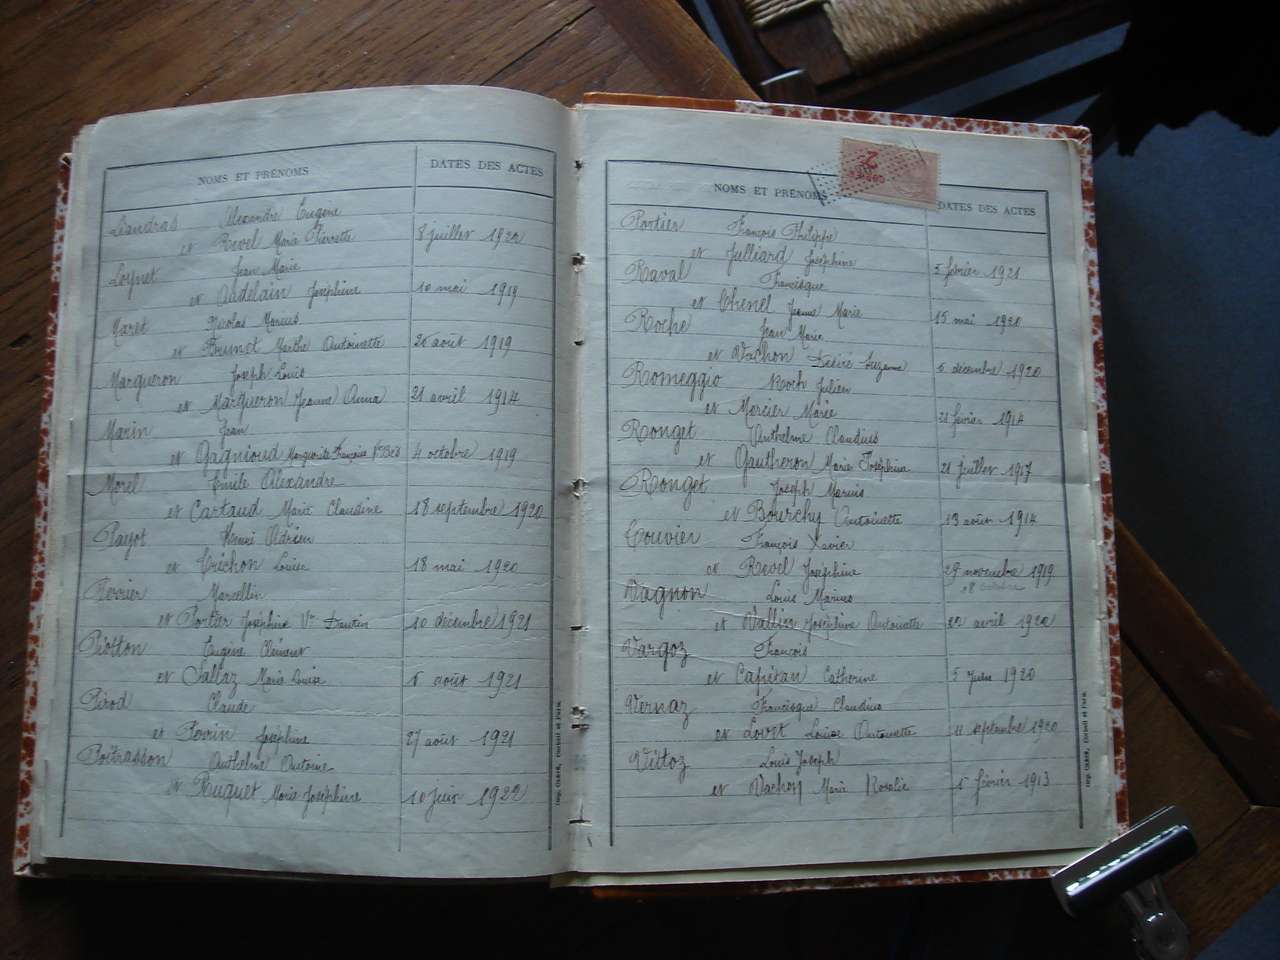 NOMS ET PRÉNOMS
DATES DES ACTES
Liandras Alexandre Eugène
et Revel Marie Pierrette 8 juillet 1920
Loynet Jean Marie
et Audelain Joséphine 10 mai 1919
Maret Nicolas Marius
et Brunet Marthe Antoinette 26 août 1919
Margueron Joseph Louis
et Margueron Jeanne Anna 21 avril 1914
Marin Jean
et Gagnioud Marguerite Françoise 4 octobre 1919
Morel Emile Alexandre
et Cartaud Marie Claudine 18 septembre 1920
Payot Henri Adrien
et Trichon Louise 18 mai 1920
Perrier Marcellin
et Portier Joséphine Vve 10 décembre 1921
Piotton Eugène Clément
et Sallaz Marie Louise 6 août 1921
Pirod Claude
et Poirin Joséphine 27 août 1921
Poitrasson Anthelme Antoine
et Ruguet Marie Joséphine 10 juin 1922
NOMS ET PRÉNOMS
DATES DES ACTES
2
Portier François Philippe
et Julliard Joséphine 5 février 1921
Raval Francisque
et Chenel Jeanne Marie 15 mai 1920
Roche Jean Marie
et Vachon Désiré Suzanne 6 décembre 1920
Romeggio Roch Julien
et Mercier Marie 21 février 1914
Ronget Anthelme Claudius
et Gautheron Marie Joséphine 21 juillet 1917
Ronget Joseph Marius
et Bourchy Antoinette 13 août 1914
Touvier François Xavier
et Revel Joséphine 29 novembre 1919
18 octobre
Vagnon Louis Marius
et Wallin Joséphine Antoinette 22 avril 1920
Vargoz François
et Capiétan Catherine 3 Juin 1920
Vernaz Francisque Claudius
et Lovit Louise Antoinette 11 septembre 1920
Vittoz Louis Joseph
et Vachon Marie Rosalie 1 février 1913